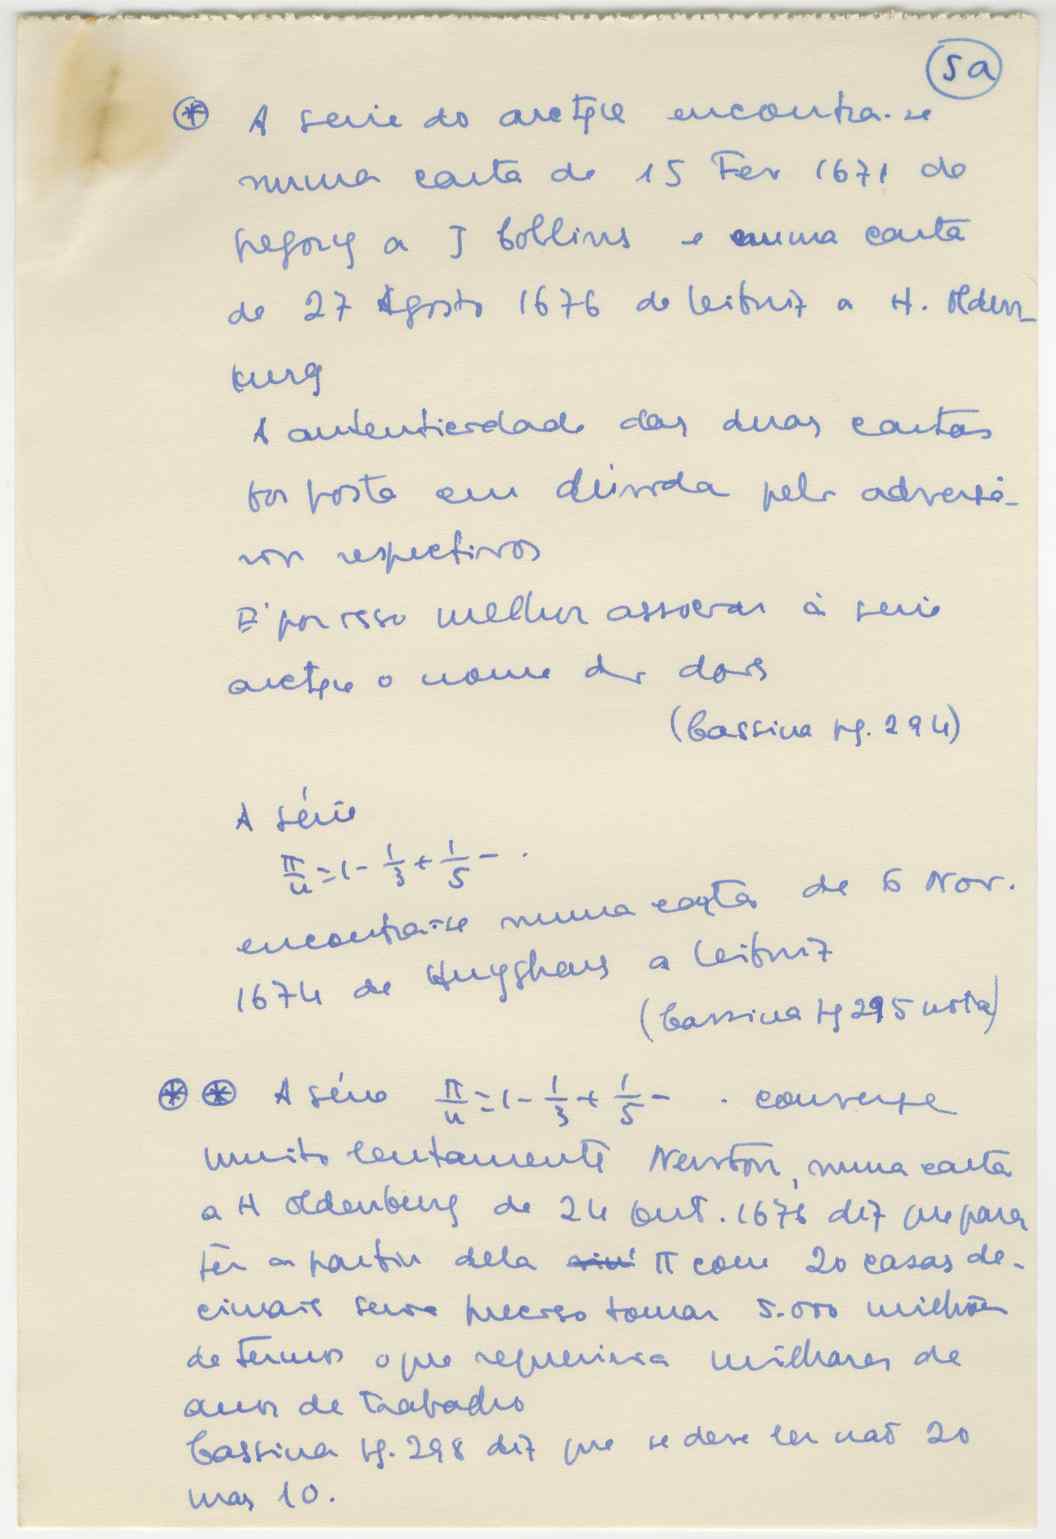 5a
* A serie do arctge encontra-se
numa carta de 15 Fev 1671 de
Gregory a J Collins e numa carta
de 27 Agosto 1676 de Leibniz a H. Olden
burg
A autenticidade das duas cartas
foi posta em dúvida pelos adversá-
rios respectivos
E' por isso melhor associar à serie
arctge o nome dos dois
(Cassina pg. 294)
A série
π/4 = 1 - 1/3 + 1/5 - .
encontra-se numa carta de 6 Nov.
1674 de Huyghens a Leibniz
(Cassina pg 295 nota)
* * A série π/4 = 1 - 1/3 + 1/5 - . converge
muito lentamente Newton, numa carta
a H Oldenburg de 24 Out. 1676 diz que para
ter a partir dela π com 20 casas de-
cimais seria preciso tomar 5.000 milhões
de termos o que requeriria milhares de
anos de trabalho
Cassina pg. 298 diz que se deve ler não 20
mas 10.